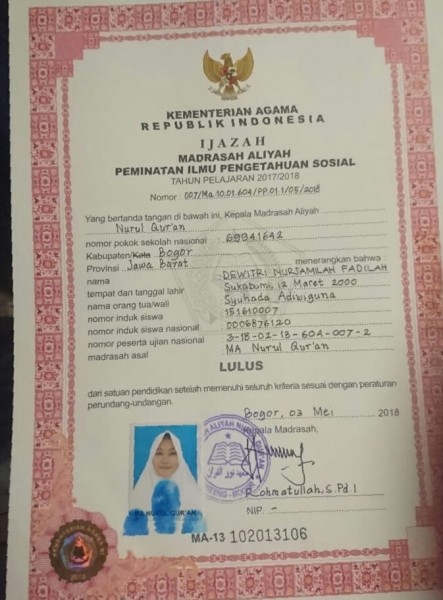 KEMENTERIAN AGAMA
REPUBLIK INDONESIA
IJAZAH
MADRASAH ALIYAH
PEMINATAN ILMU PENGETAHUAN SOSIAL
TAHUN PELAJARAN 2017/2018
Nomor : 007/Ma.10.01.604/PP.01.1/05/2018
Yang bertanda tangan di bawah ini, Kepala Madrasah Aliyah
Nurul Qur'an
nomor pokok sekolah nasional : 69941642
Kabupaten/Kota Bogor
Provinsi Jawa Barat menerangkan bahwa
nama : DEWITRI NURJAMILAH FADILAH
tempat dan tanggal lahir : Sukabumi, 12 Maret 2000
nama orang tua/wali : Syuhada Adiwiguna
nomor induk siswa : 151610007
nomor induk siswa nasional : 0006876120
nomor peserta ujian nasional : 3-18-02-13-604-007-2
madrasah asal : MA Nurul Qur'an
LULUS
dari satuan pendidikan setelah memenuhi seluruh kriteria sesuai dengan peraturan
perundang-undangan.
Bogor, 03 Mei 2018
Kepala Madrasah,
Rohmatullah, S.Pd.I
NIP. -
MA-13 102013106